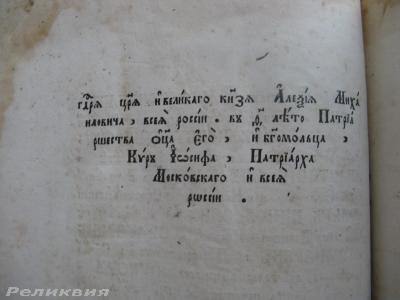 гдⷭ҇рѧ цр҃ѧ и҆ великаго кн҃зѧ А҆леѯі́ѧ Миха
иловича, всеѧ̀ росїи. въ ѳ҃, лѣто Патрїа
ршества ѻ҆ц҃а Е҆гѡ̀, и҆ бг҃омольца,
Кѵръ І҆ѡ́сифа, Патрїа́рха
Московскаго и҆ всеѧ̀
рѡссїи.
Реликвия